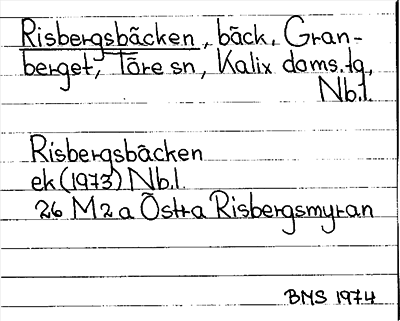 Risbergsbäcken, bäck, Gran-
berget, Töre sn, Kalix doms.tg,
Nb.l.
Risbergsbäcken
ek (1973) Nb.l.
26 M 2 a Östra Risbergsmyran
BMS 1974